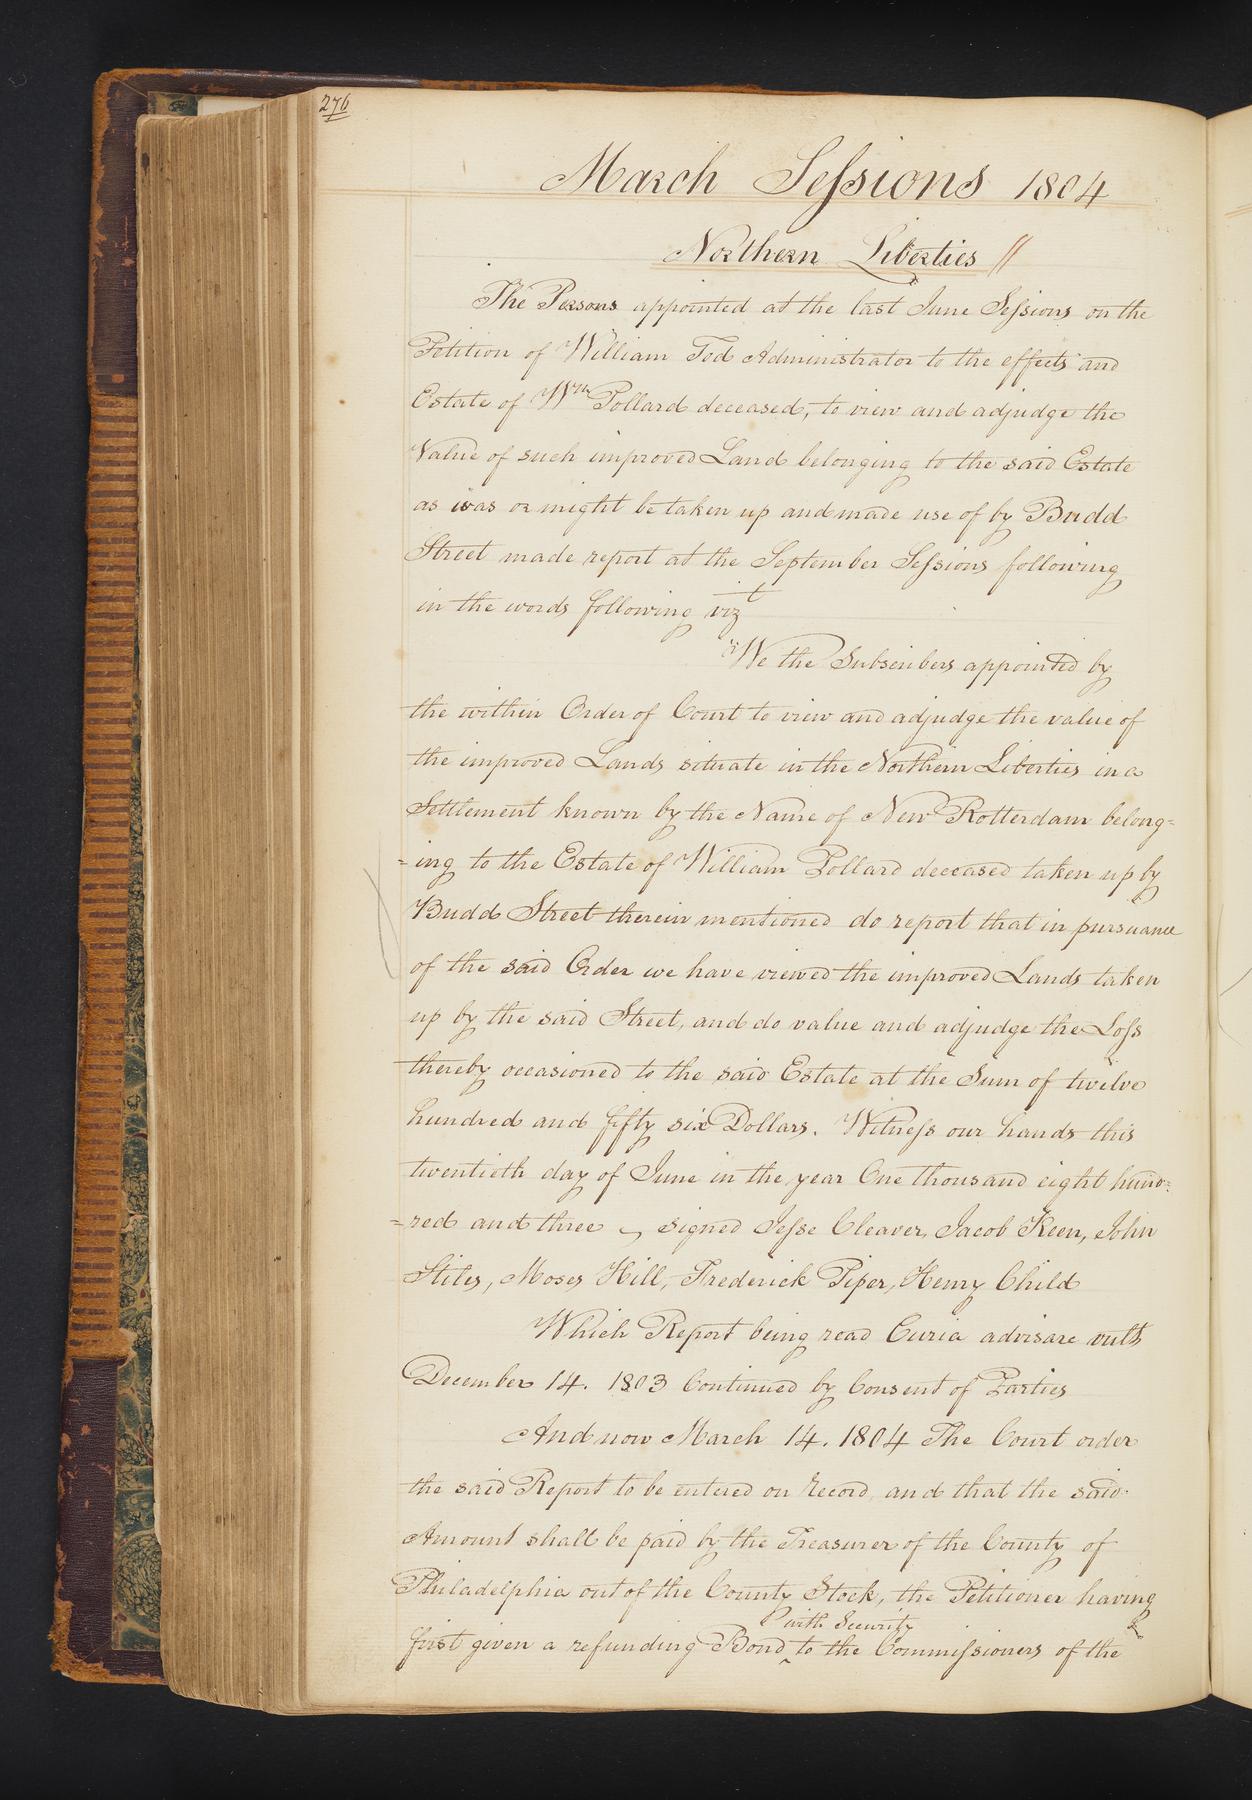 276
March Sessions 1804
Northern Liberties //
The Persons appointed at the last June Sessions on the
Petition of William Tod Administrator to the effects and
Estate of Wm Pollard deceased, to view and adjudge the
Value of such improved Land belonging to the said Estate
as was or might be taken up and made use of by Budd
Street made report at the September Sessions following
in the words following vizt
"We the Subscribers appointed by
the within Order of Court to view and adjudge the value of
the improved Lands situate in the Northern Liberties in a
Settlement known by the Name of New Rotterdam belong=
=ing to the Estate of William Pollard deceased taken up by
Budd Street therein mentioned do report that in pursuance
of the said Order we have viewed the improved Lands taken
up by the said Street, and do value and adjudge the Loss
thereby occasioned to the said Estate at the Sum of twelve
hundred and fifty six Dollars. Witness our hands this
twentieth day of June in the year One thousand eight hund=
=red and three ~ signed Jesse Cleaver, Jacob Keen, John
Stiles, Moses Hill, Frederick Piper, Henry Child
Which Report being read Curia advisare vult
December 14. 1803 Continued by Consent of Parties
And now March 14. 1804 The Court order
the said Report to be entered on record, and that the said
Amount shall be paid by the Treasurer of the County of
Philadelphia out of the County Stock, the Petitioner having
with Security
first given a refunding Bond ‸ to the Commissioners of the